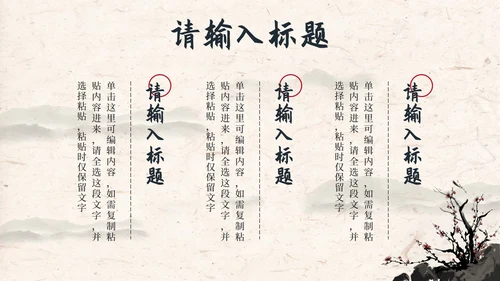 请输入标题
请输入标题
单击这里可编辑内容，如需复制粘
贴内容进来，请全选这段文字，并
选择粘贴，粘贴时仅保留文字
请输入标题
单击这里可编辑内容，如需复制粘
贴内容进来，请全选这段文字，并
选择粘贴，粘贴时仅保留文字
请输入标题
单击这里可编辑内容，如需复制粘
贴内容进来，请全选这段文字，并
选择粘贴，粘贴时仅保留文字